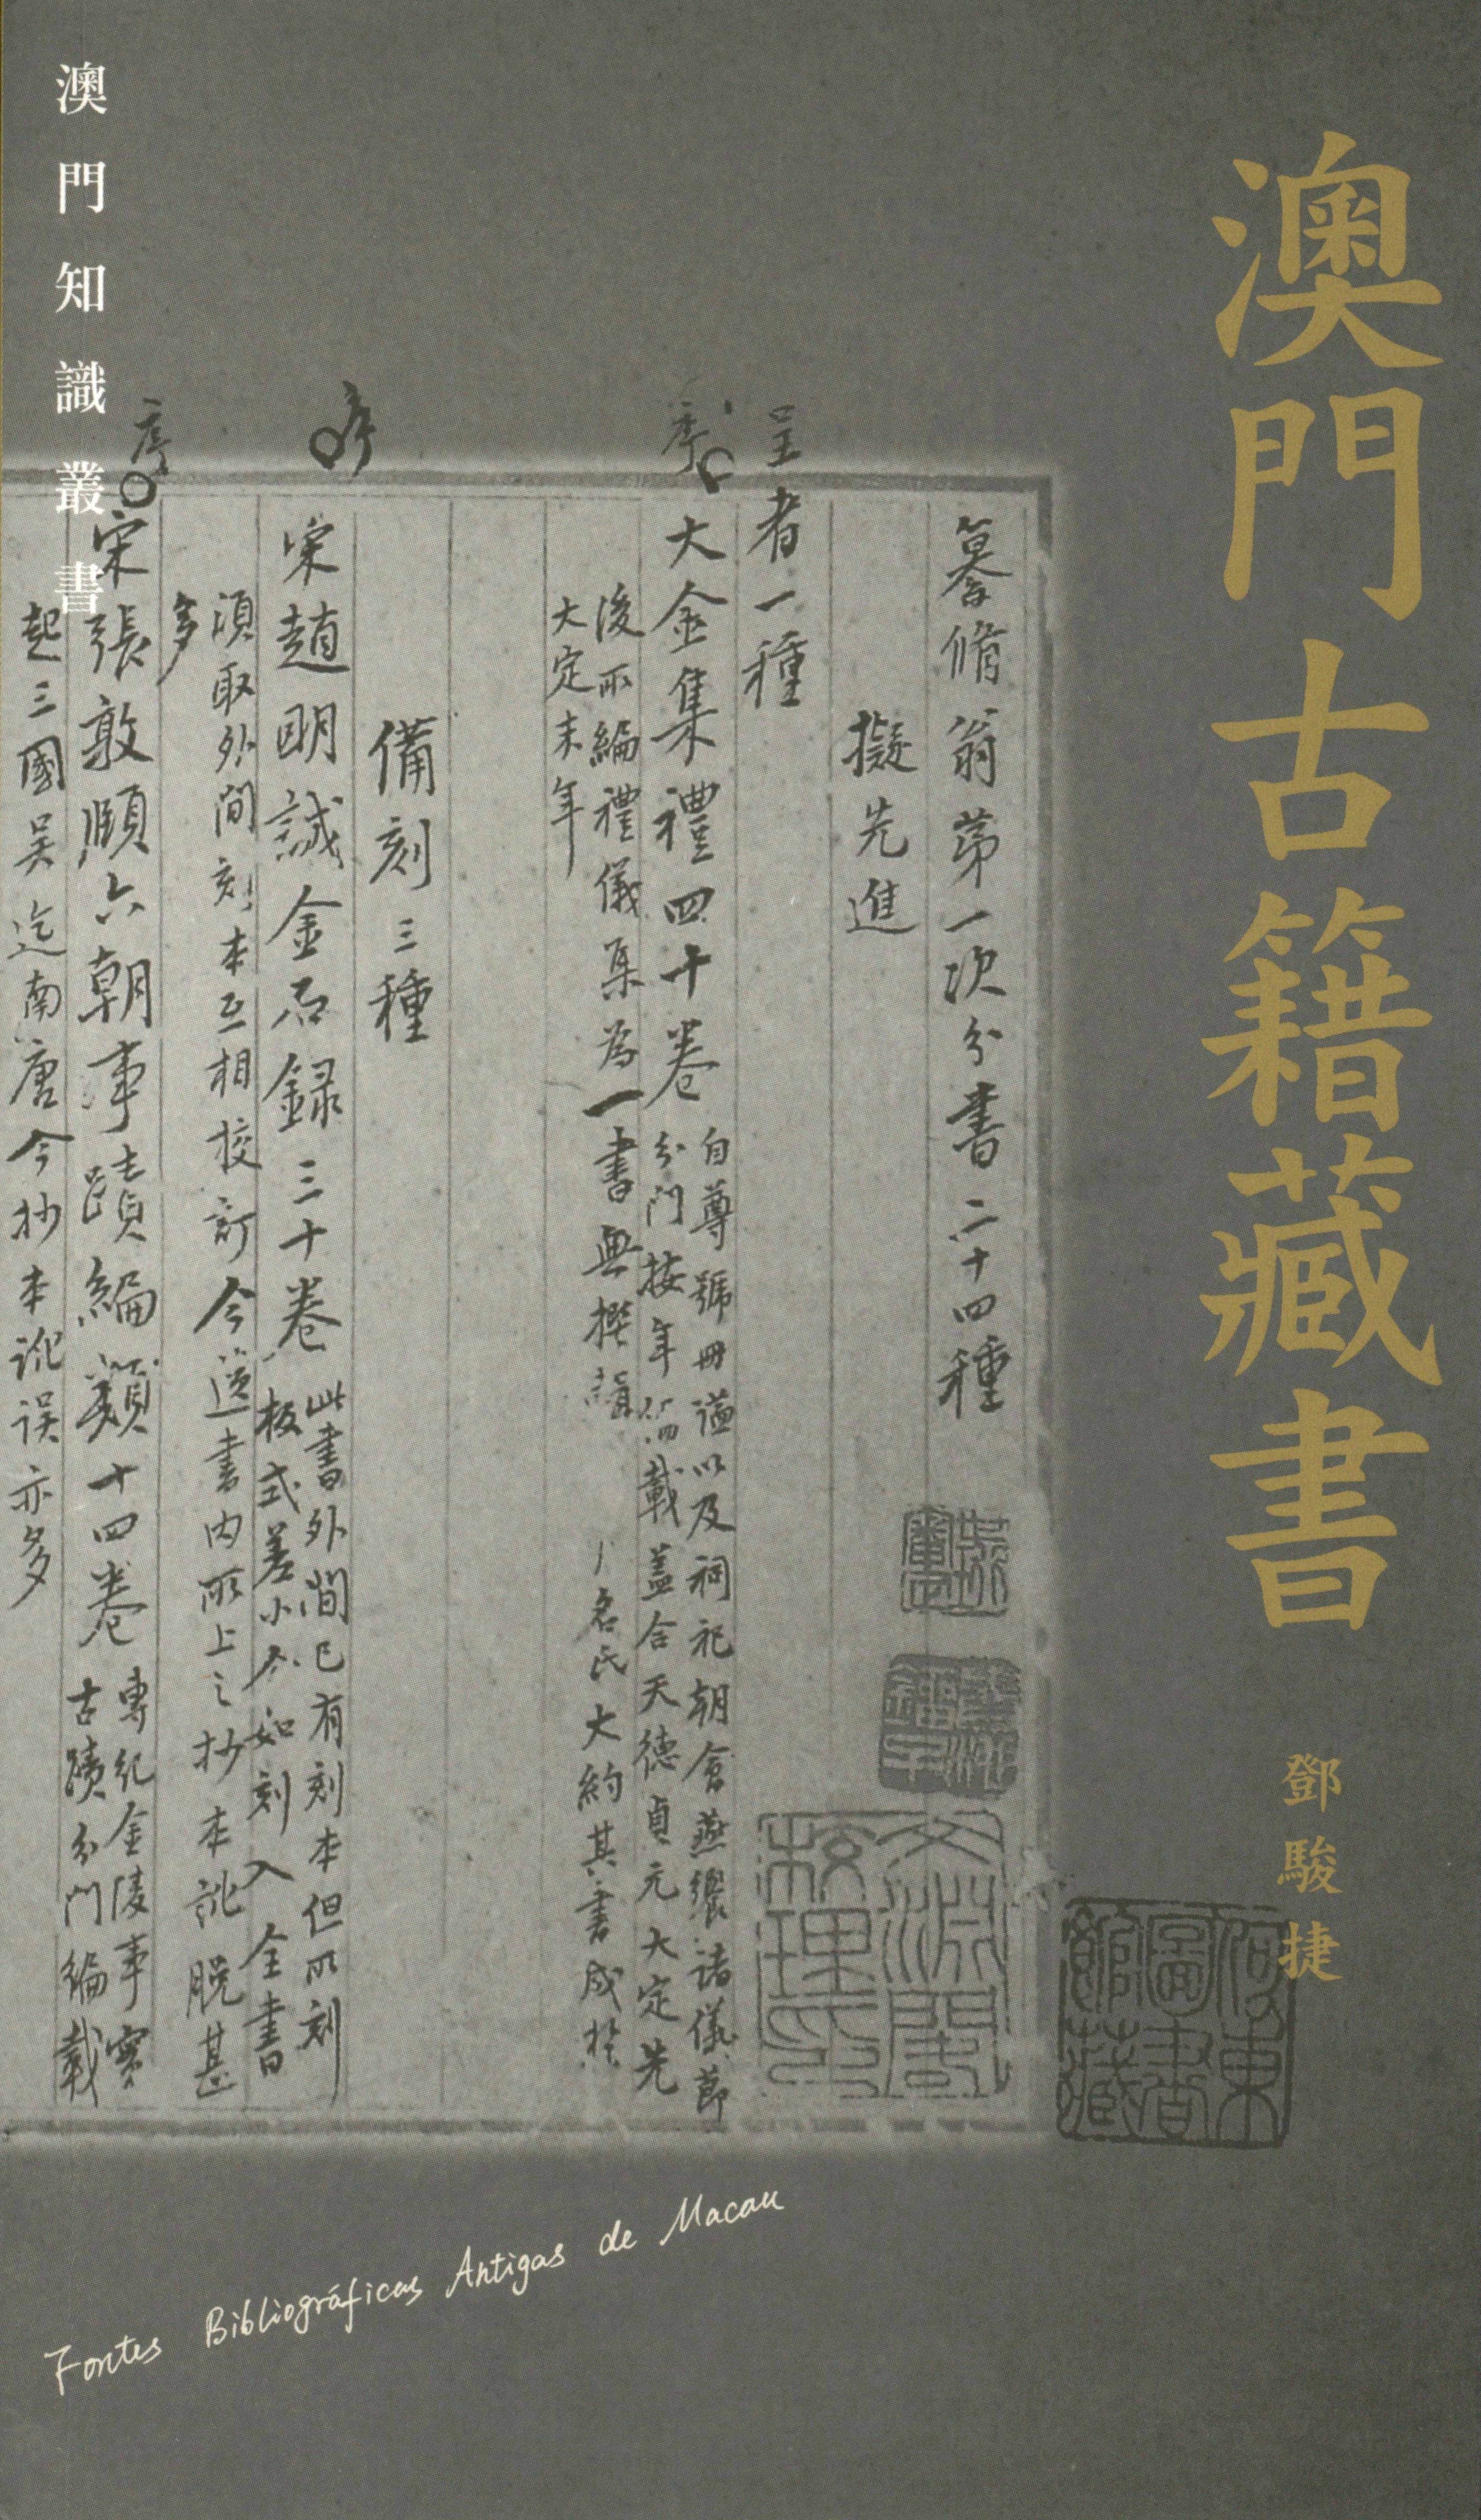 澳門古籍藏書
鄧駿捷
澳門知識叢書
纂脩翁第一次分書二十四種
擬先進
呈者一種
序
大金集禮四十卷
自尊號冊謚以及祠祀朝會燕饗諸儀節
分門按年臚載蓋合天德貞元大定先
後所編禮儀集為一書無撰輯
名氏大約其書成於
大定末年
備刻三種
序
宋趙明誠金石録三十卷
此書外間已有刻本但所刻
板式差小今如刻入全書
須取外間刻本互相挍訂今進書內所上之抄本訛脫甚
多
序
宋張敦頤六朝事蹟編類十四卷
專紀金陵事實
古蹟分門編載
起三國吴迄南唐今抄本訛误亦多
文淵閣校理印
何東圖書館藏
Fontes Bibliográficas Antigas de Macau